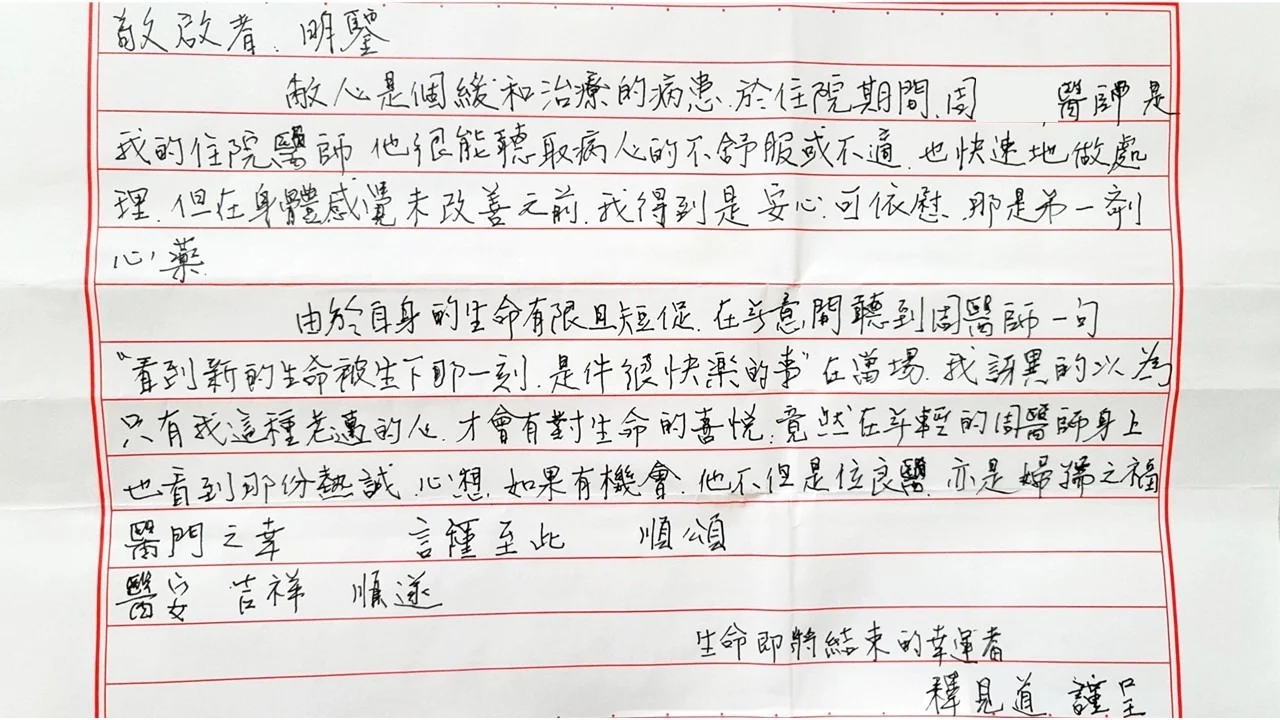 敬啟者、明鑒
敝人是個緩和治療的病患、於住院期間、周 醫師是
我的住院醫師 他很能聽取病人的不舒服或不適、也快速地做處
理、但在身體感覺未改善之前、我得到是安心、可依慰、那是第一劑
心藥
由於自身的生命有限且短促、在無意間聽到周醫師一句
"看到新的生命被生下那一刻、是件很快樂的事" 在當場、我訝異的以為
只有我這種老邁的人、才會有對生命的喜悅、竟然在年輕的周醫師身上
也看到那份熱誠、心想、如果有機會、他不但是位良醫、亦是婦孺之福
醫門之幸 言種至此 順頌
醫安 吉祥 順遂
生命即將結束的幸運者
釋見道 謹呈